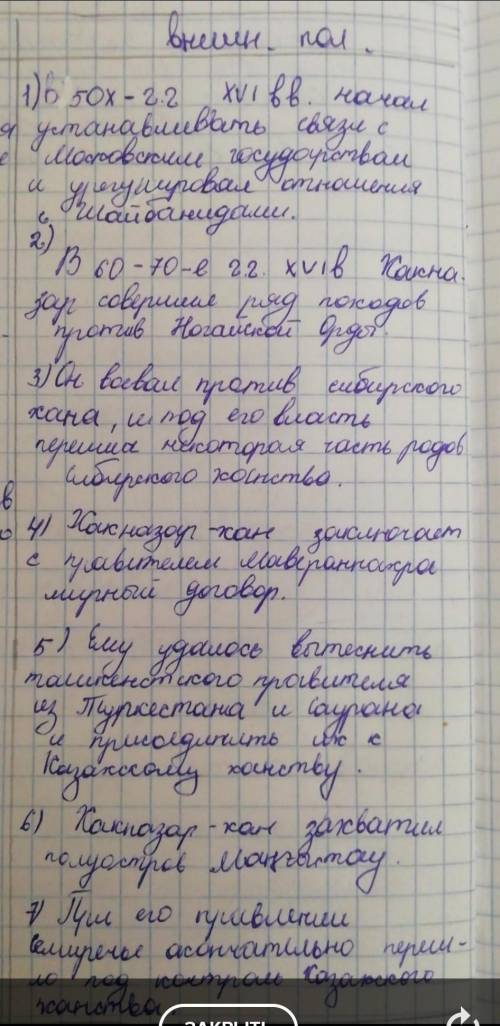 внешн. пол.
1) В 50х - г.г XVI вв. начал
я устанавливать связи с
е Московским государством
и урегулировал отношения
с Шайбанидами.
2)
В 60-70-е г.г. XVI в Хакна.
зар совершил ряд походов
против Ногайской Орды.
3) Он воевал против сибирского
хана, и под его власть
перешла некоторая часть родов
Сибирского ханства.
в
о 4) Хакназар-хан заключает
с правителем Мавераннахра
мирный договор.
5) Ему удалось вытеснить
ташкентского правителя
из Туркестана и Саурана
и присоединить их к
Казахскому ханству.
6) Хакназар-хан захватил
полуостров Маңғыстау.
7) При его правлении
Семиречье окончательно переш-
ло под контроль Казахского
ханства.
ЗАКРЫТЬ